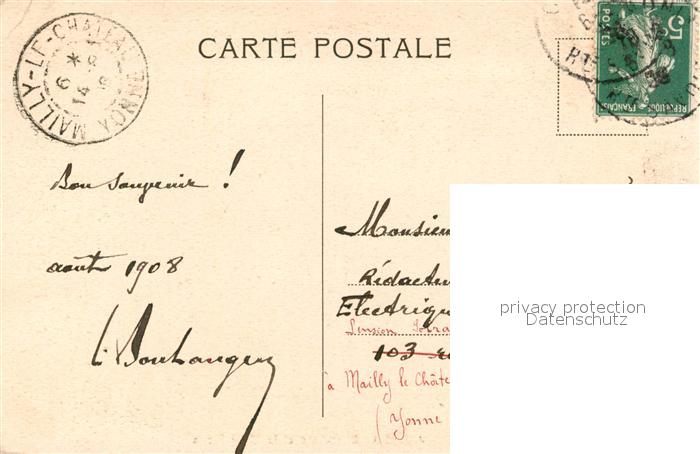 CARTE POSTALE
MAILLY-LE-CHATEAU YONNE
6 *
14 -8
5c
POSTES
REPUBLIQUE FRANÇAISE
Bon souvenir !
août 1908
L. Boulanger
Monsieu
Rédacteu
Electriqu
103
à Mailly le Châte
(Yonne
privacy protection
Datenschutz